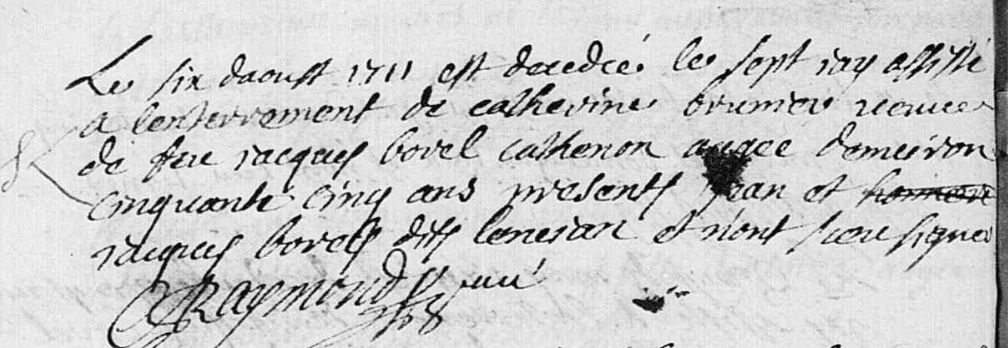 Le six daoust 1711 est decedée le sept jay assisté
a lenterrement de catherine brunier veuve
de feu jacques borel cathenon augee denviron
cinquante cinq ans presents jean et
jacques borels dits et n'ont sceu signer
Raymond curé